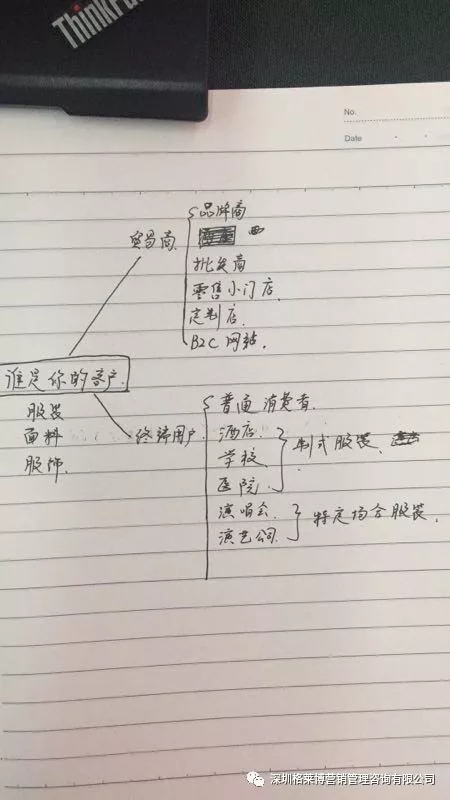 ThinkPad
No.
Date
贸易商
品牌商
批发商
零售小门店
定制店
B2C 网站.
谁是你的客户.
服装
面料
服饰
终端用户
普通消费者.
酒店.
学校.
医院.
制式服装
演唱会.
演艺公司.
特定场合服装.
深圳格莱博营销管理咨询有限公司